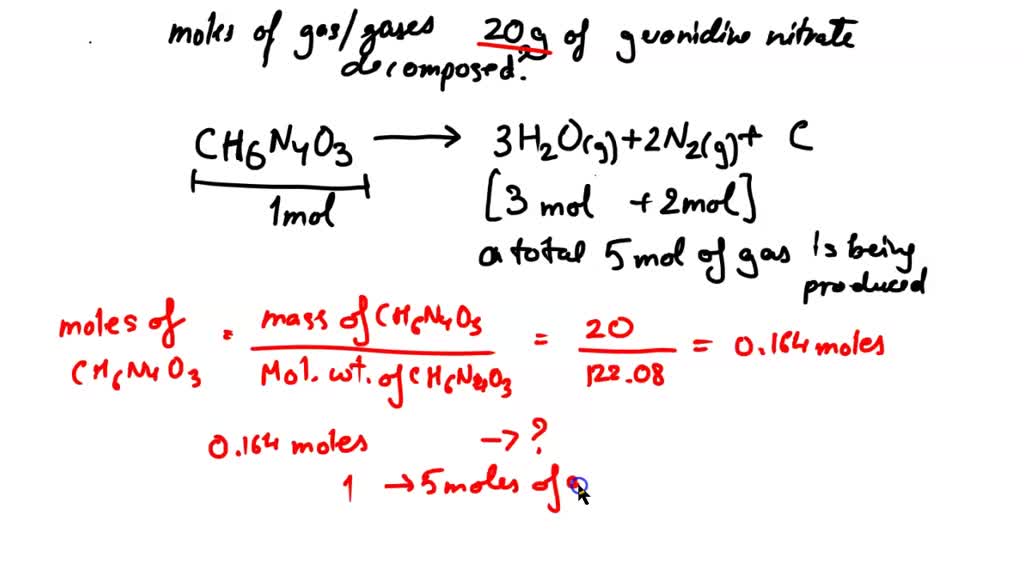 moles of gas/gases 20g of guonidine nitrate
decomposed?
CH6N4O3 → 3H2O(g)+2N2(g)+ C
1mol [3 mol +2mol]
a total 5mol of gas is being
produced
moles of CH6N4O3 = mass of CH6N4O3 / Mol. wt. of CH6N4O3 = 20 / 122.08 = 0.164 moles
0.164 moles → ?
1 → 5moles of